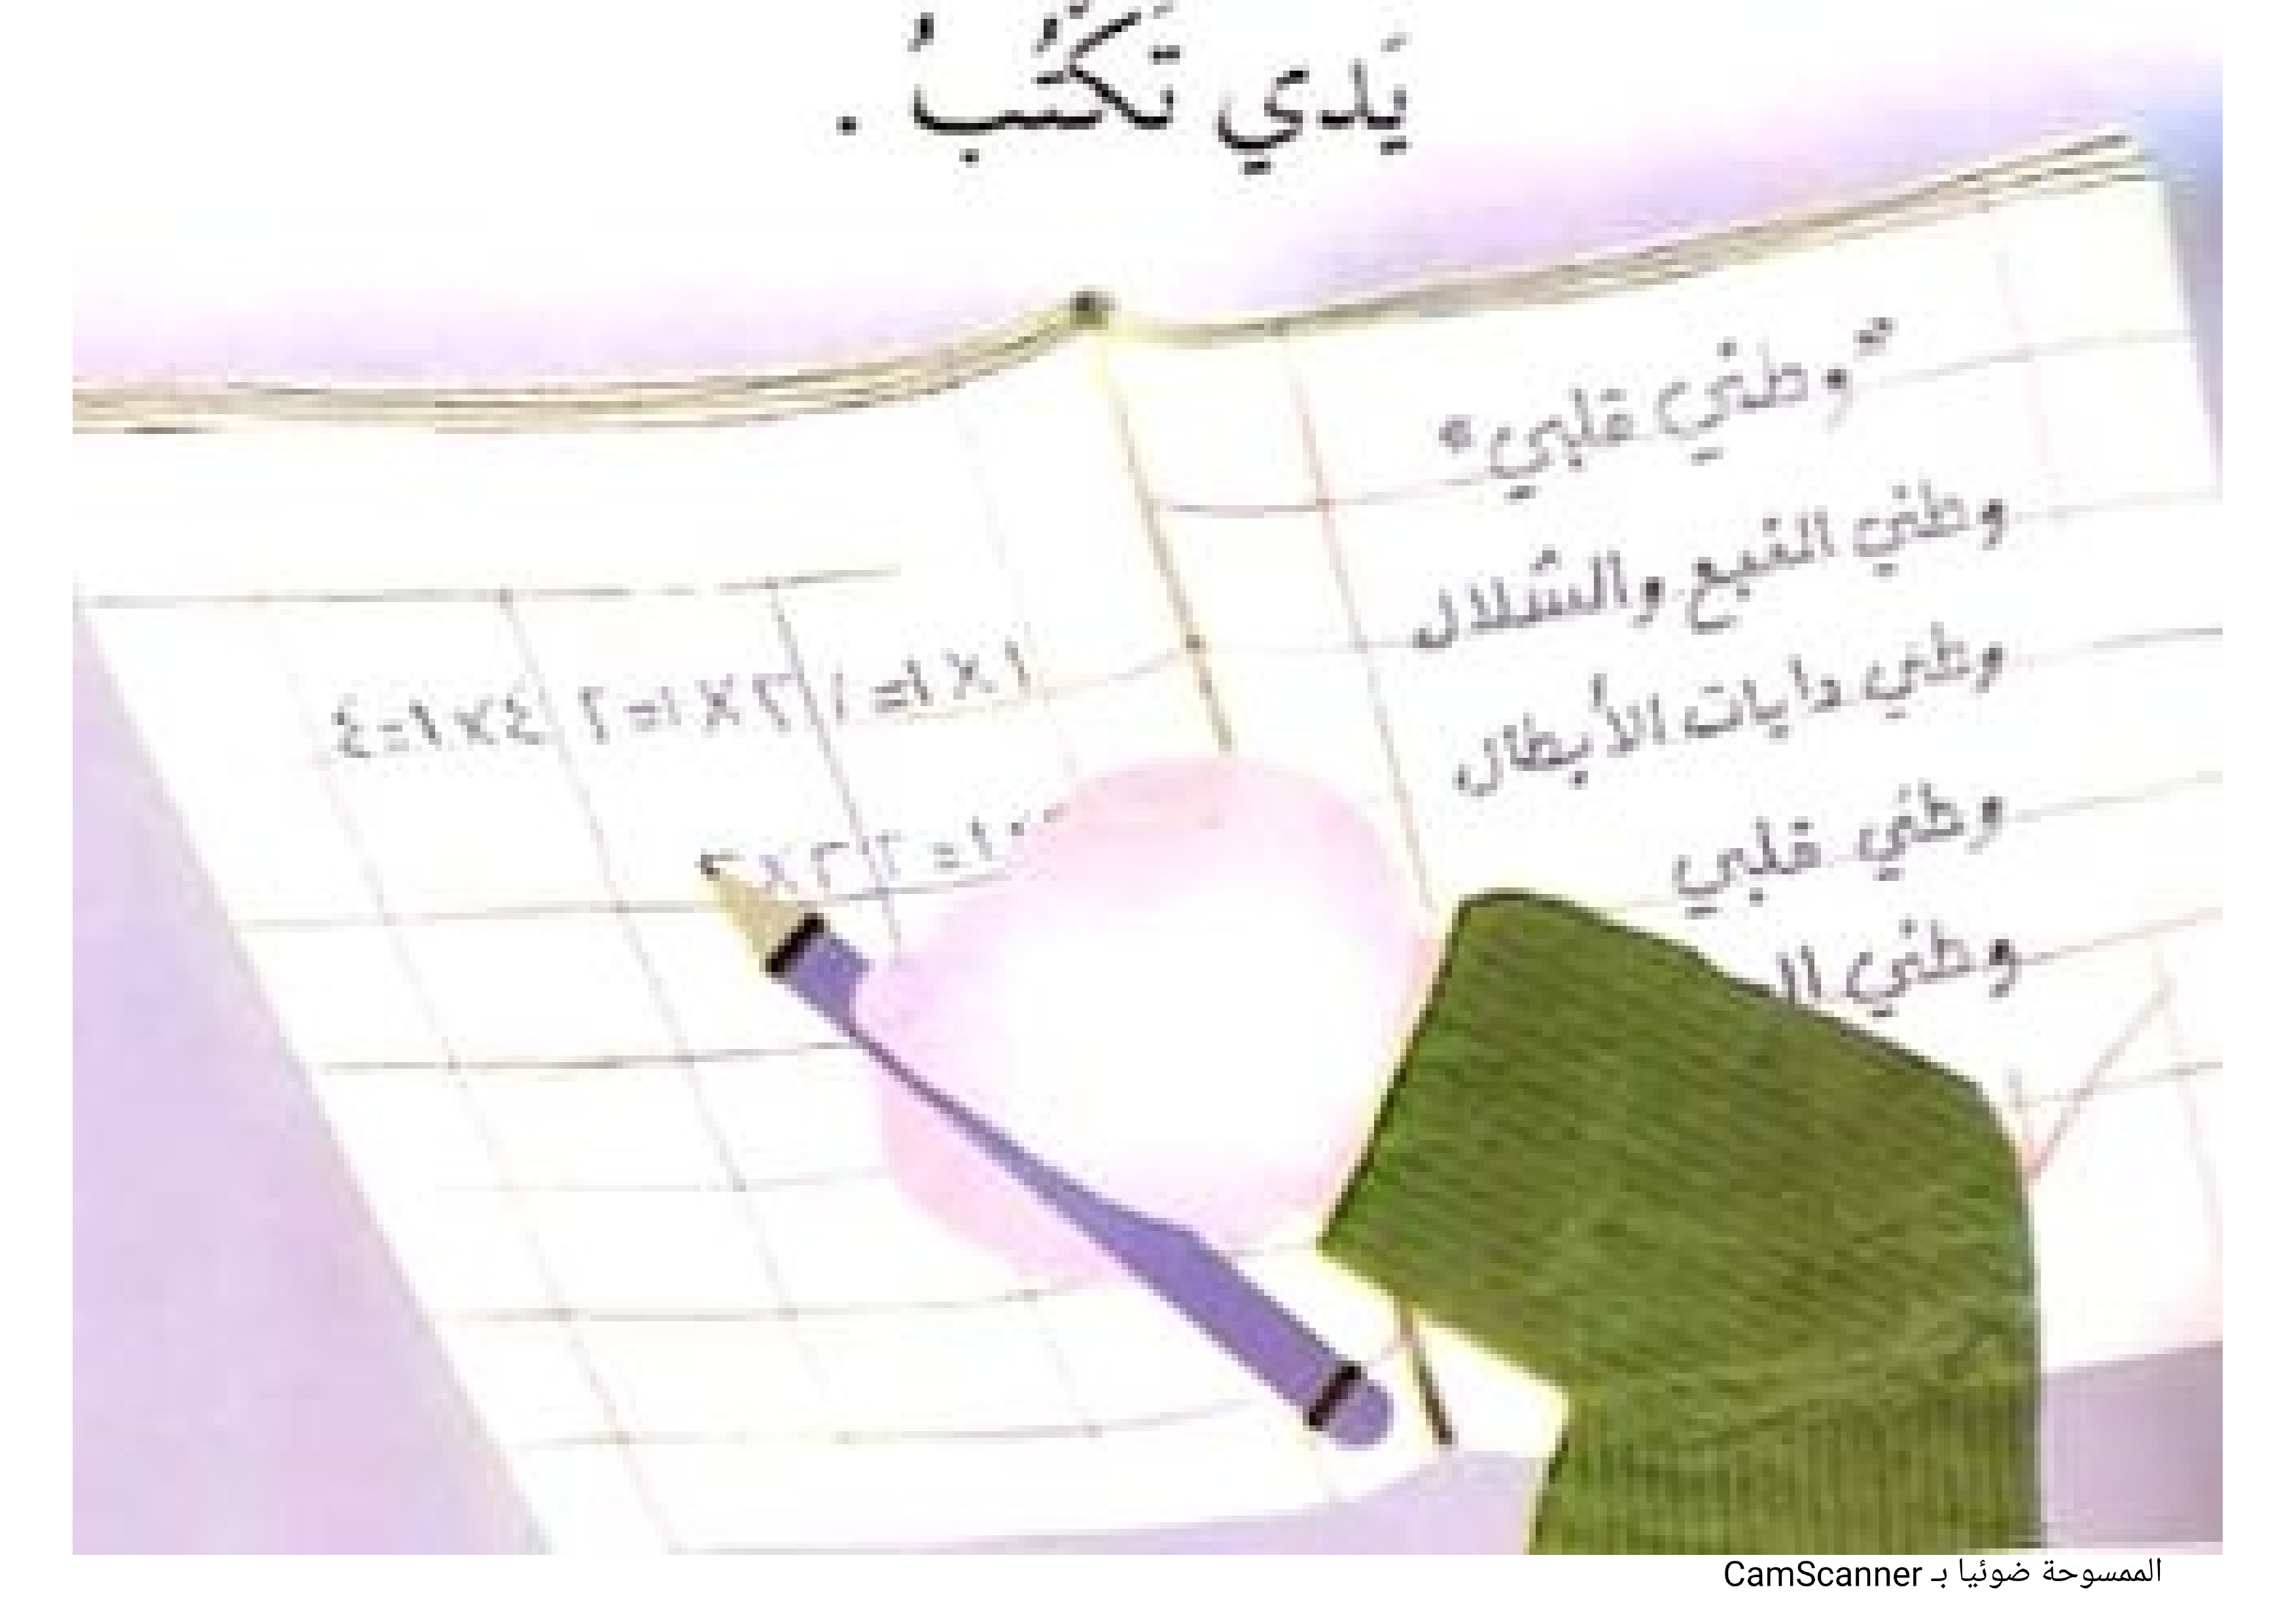 يَدي تَكْتُبُ .
"وطني قلبي"
وطني النبع والشلال
وطني دايات الأبطال
وطني قلبي
وطني ال
١ × ١ = ١
٢ × ١ = ٢
٤ × ١ = ٤
الممسوحة ضوئيا بـ CamScanner